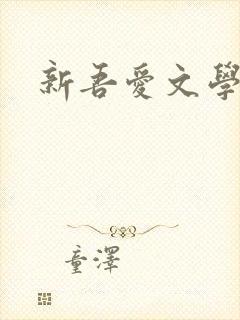 新吾愛文學
童澤